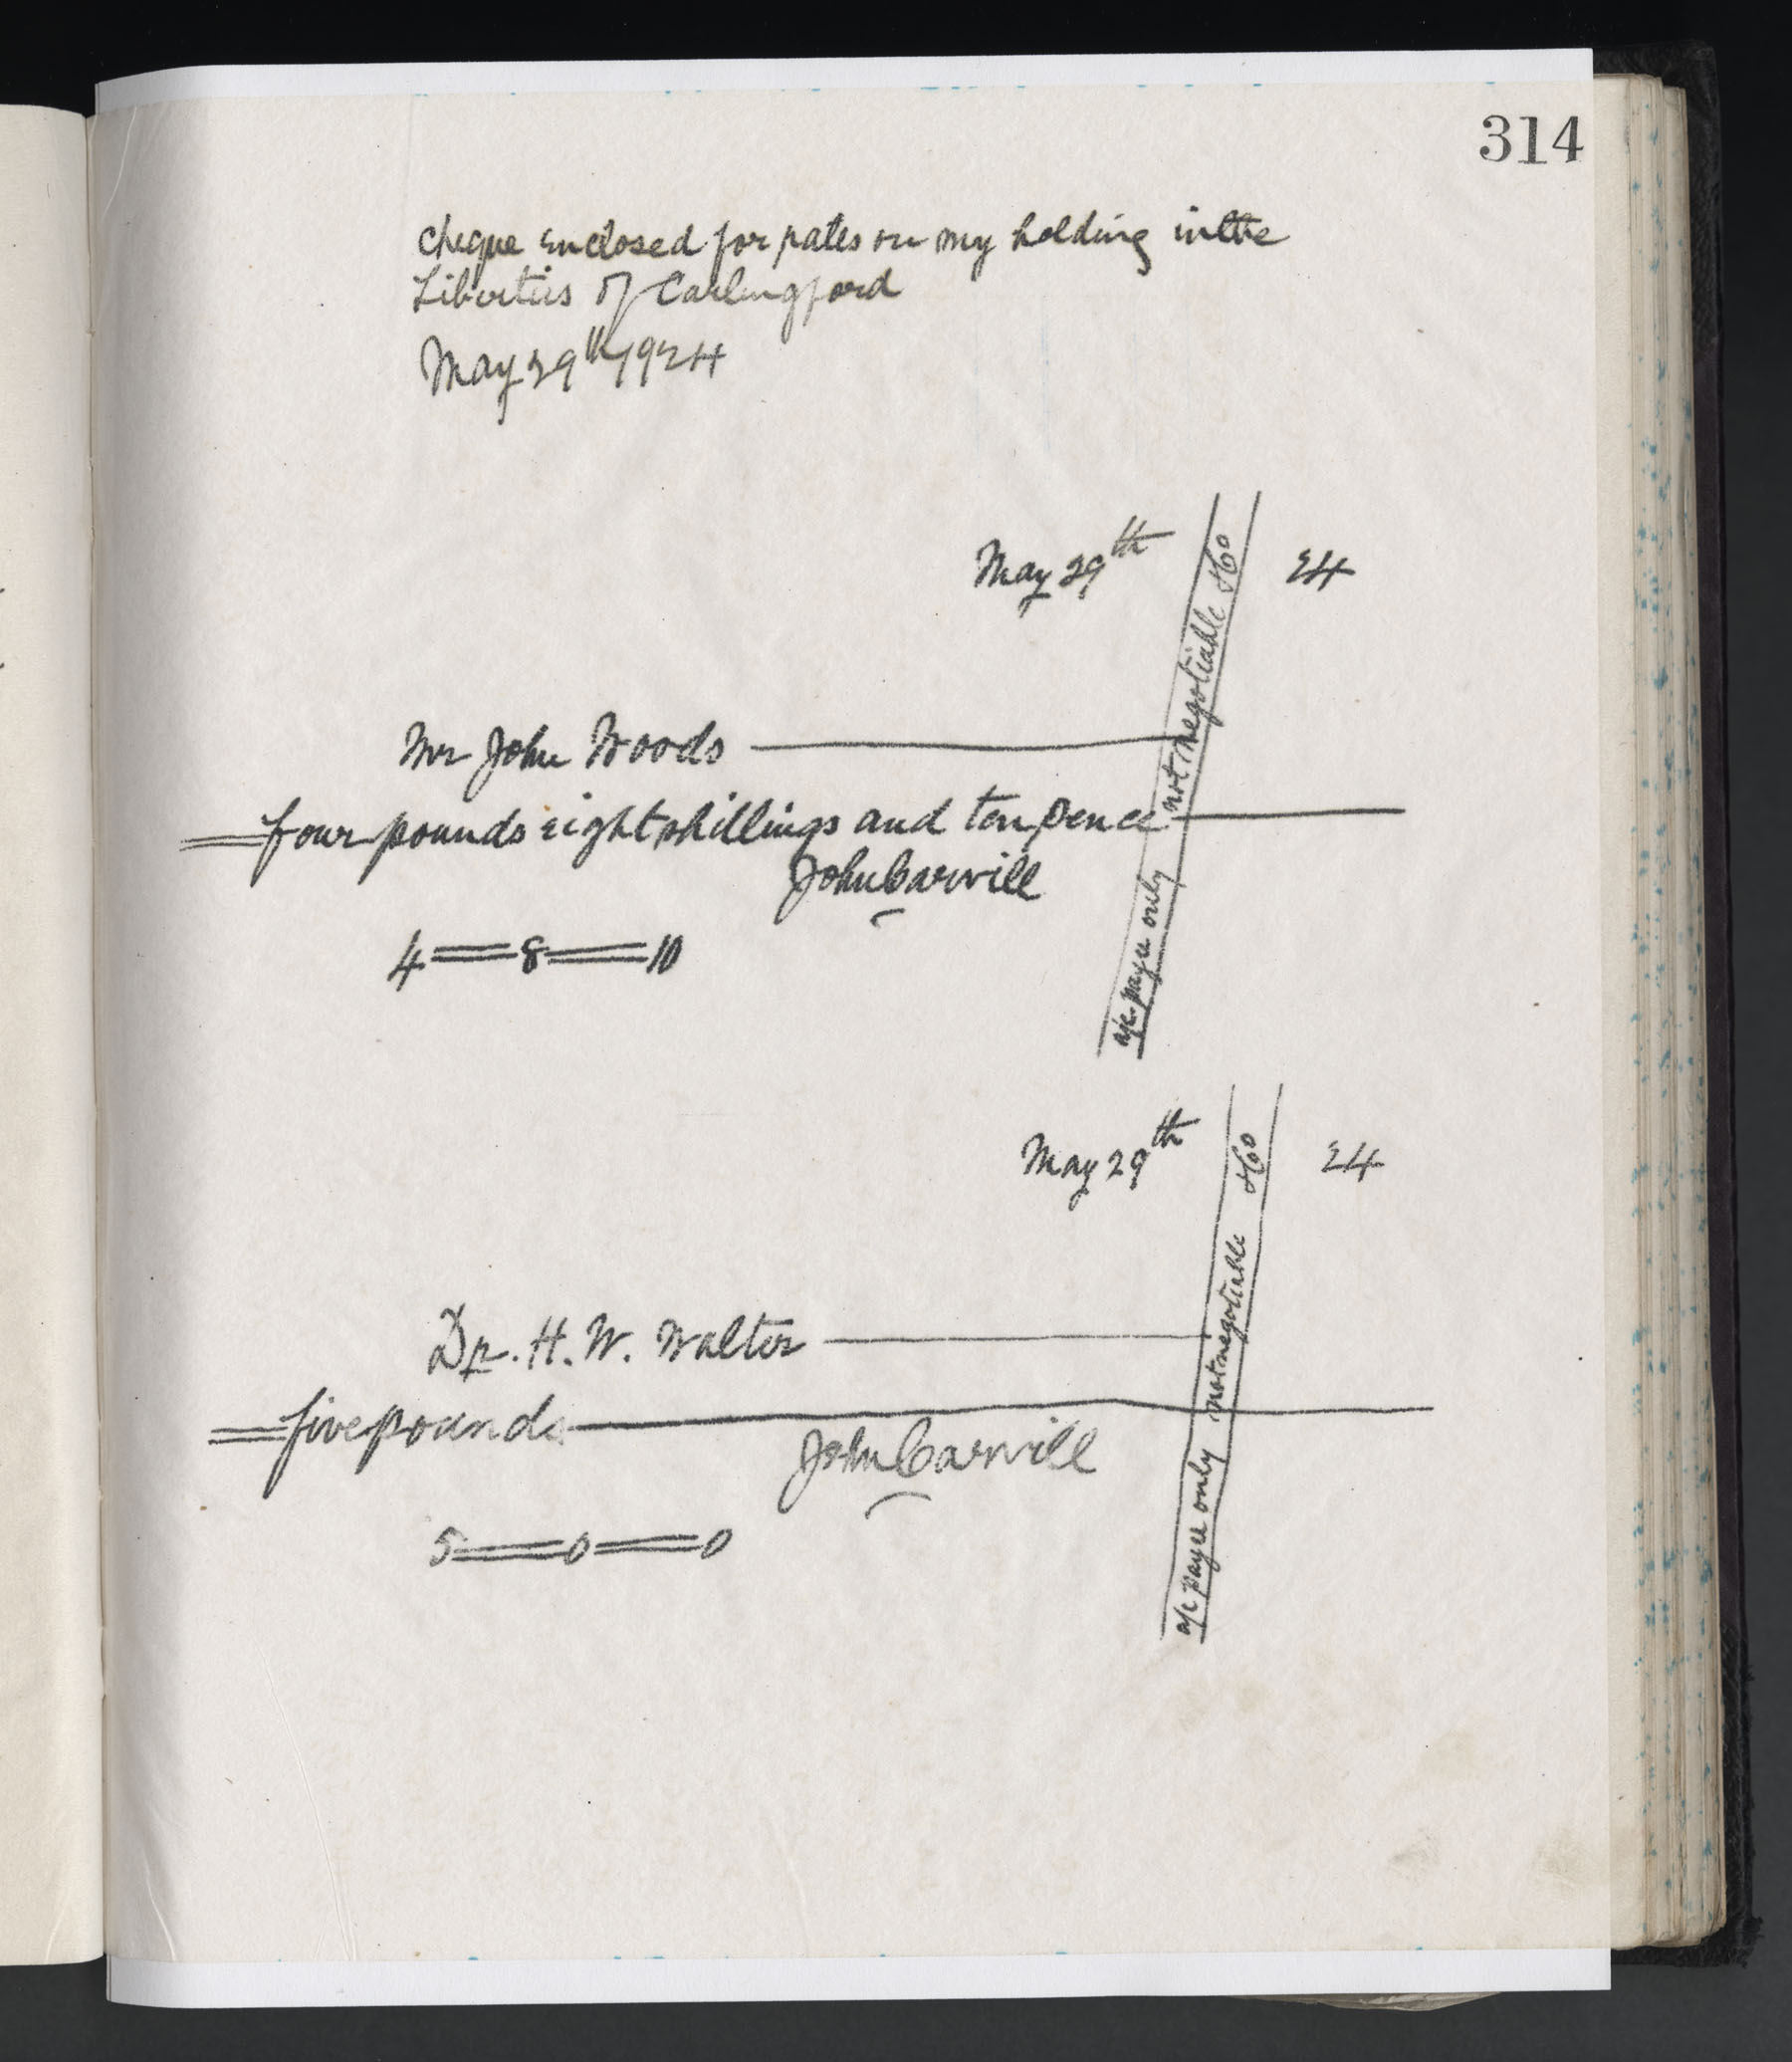 314
Cheque enclosed for rates on my holding in the
Liberties of Carlingford
May 29th 1924
May 29th 24
Mr John Woods
four pounds eight shillings and ten pence
John Carvill
4 = 8 = 10
a/c payee only not negotiable & Co
May 29th 24
Dr. H. W. Walter
five pounds
John Carvill
5 = 0 = 0
a/c payee only not negotiable & Co